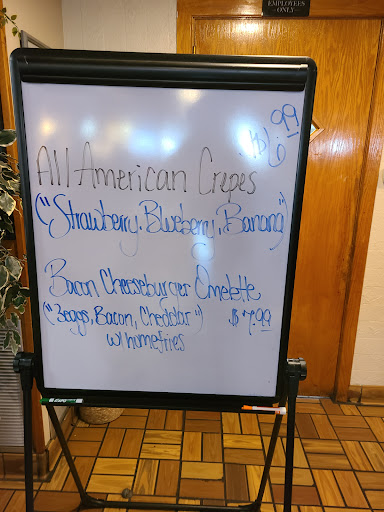 EMPLOYEES
ONLY
.99
All American Crepes
("Strawberry, Blueberry, Banana")
Bacon Cheeseburger Omelette
("3eggs, Bacon, Cheddar") $7.99
w/ homefries